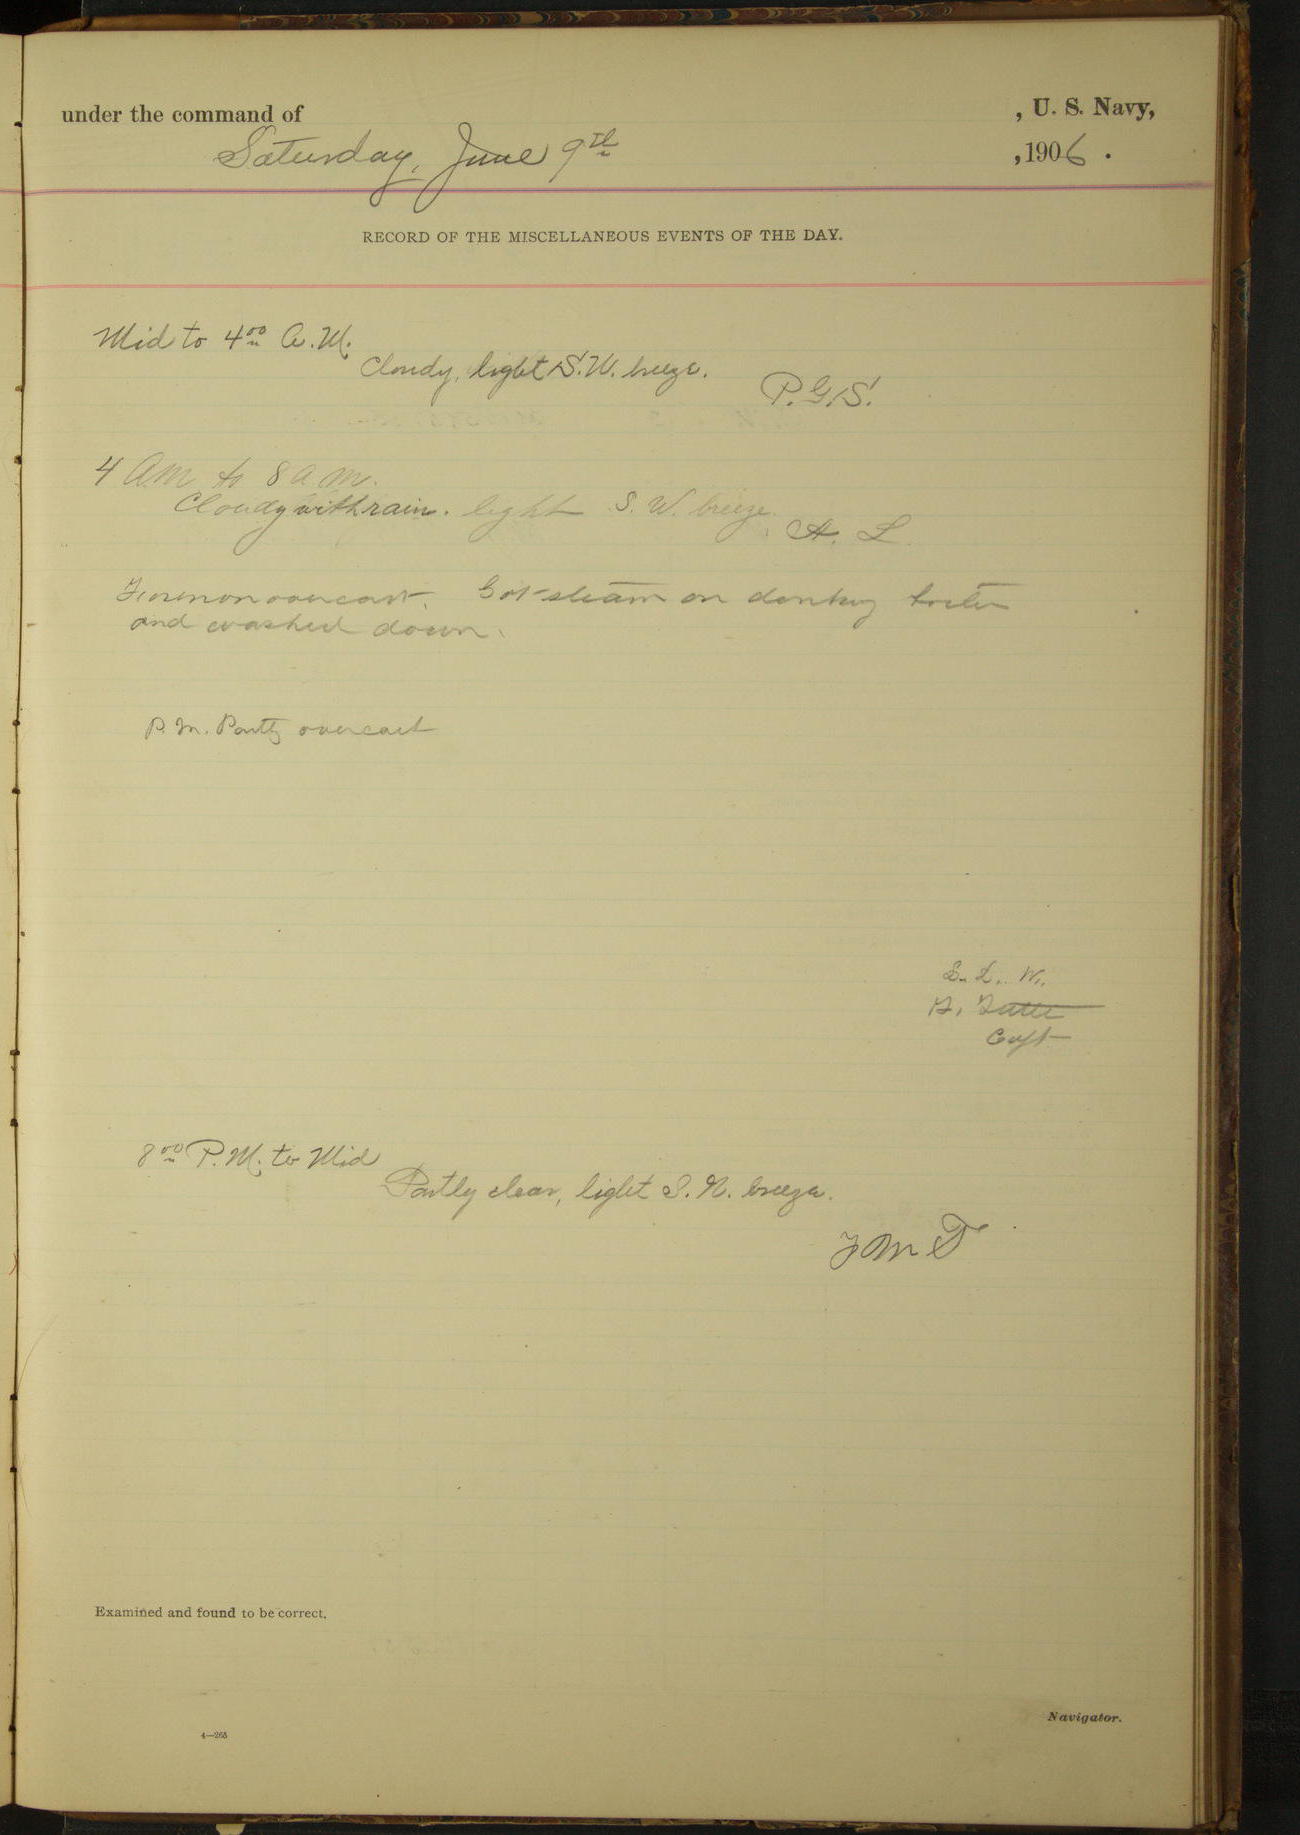 under the command of , U. S. Navy,
Saturday, June 9th , 1906.
RECORD OF THE MISCELLANEOUS EVENTS OF THE DAY.
Mid to 400 A.M.
Cloudy, light S.W. breeze.
P.G.S.
4 A.M to 8 a m.
Cloudy with rain. light S. W. breeze.
A. L.
Forenoon overcast. Got steam on donkey boiler
and washed down.
P. M. Partly overcast
L. W.
Capt
800 P.M. to Mid
Partly clear, light breeze.
F M T
Examined and found to be correct.
Navigator.
4—265